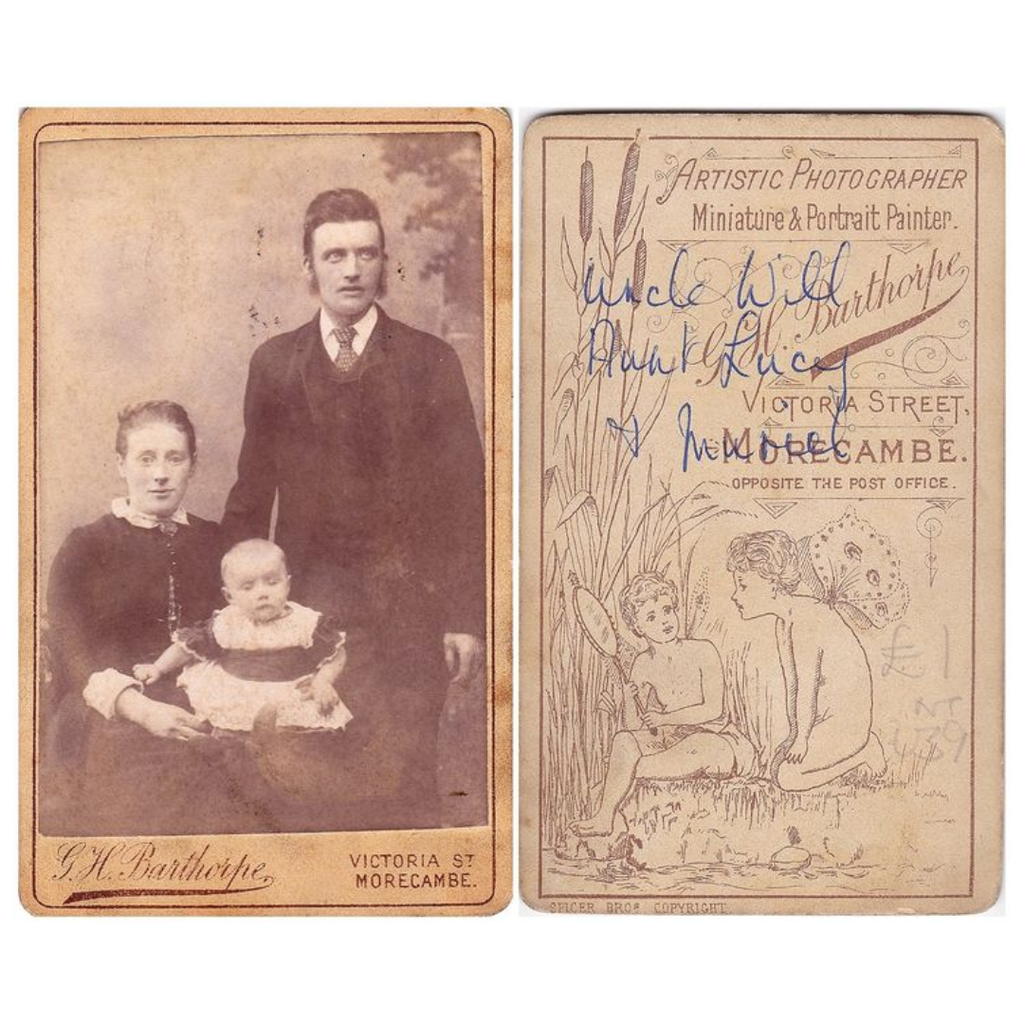 G. H. Barthorpe,
VICTORIA ST
MORECAMBE.
ARTISTIC PHOTOGRAPHER
Miniature & Portrait Painter.
G. H. Barthorpe,
Uncle Will
Aunt Lucy
& Muriel
VICTORIA STREET,
MORECAMBE.
OPPOSITE THE POST OFFICE.
£1
SPICER BROS COPYRIGHT